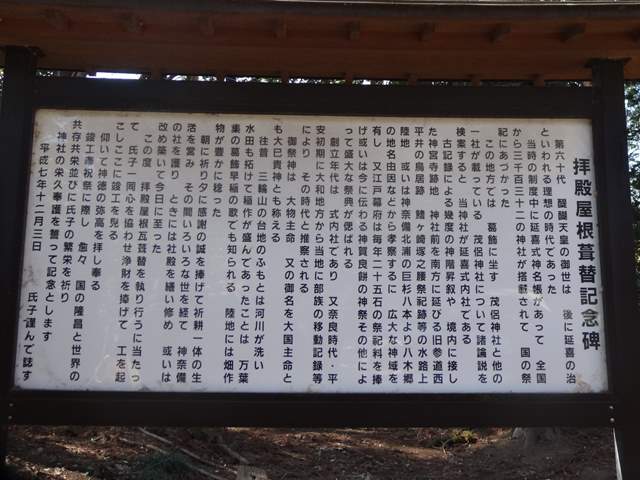 拝殿屋根葺替記念碑
第六十代 醍醐天皇の御世は 後に延喜の治
といわれる理想の時代であった
当時の制度中に延喜式神名帳があって 全国
から三千百三十二の神社が搭載されて 国の祭
祀にあずかった
この地方では 葛飾に坐す 茂侶神社と他の
一社が載っている 茂侶神社について諸論説を
検索すると 当神社が延喜式内社である
古記録による幾度の神階昇叙や 境内に接し
た神宮寺跡地 神社前を南方に延びる旧参道西
平井の鳥居跡 鰭ヶ崎塚之腰祭祀跡等の水路上
陸地 或いは神奈備北浦の巨杉八本より八木郷
の地名由因などから孝察するに 広大な神域を
有し 今江戸幕府は毎年二十五石の祭祀料を捧
げ或いは今に伝わる神賀良餅の神祭その他によ
って盛大な祭典が偲ばれる
創立年代は 式内社であり 又奈良時代・平
安初期に大和地方から当地に部族の移動記録等
により その時代と推察される
御祭神は 大物主命 又の御名を大国主命と
も大巳貴神とも称える
往昔 三輪山の台地のふもとは河川が洗い
水田も拓けて稲作が盛んであったことは 万葉
集の葛飾早稲の歌でも知られる 陸地には畑作
物が豊かに稔った
朝に祈り夕に感謝の誠を捧げて祈耕一体の生
活を営み その間いろいろな世を経て 神奈備
の社を護り ときには社殿を繕い修め 或いは
改め築いて今日に至った
この度 拝殿屋根瓦葺替を執り行うに当たっ
て 氏子一同心を協わせ浄財を捧げて 工を起
こしここに竣工を見る
仰いで神徳の弥高を拝し奉る
竣工奉祝祭に際し 愈々 国の隆昌と世界の
共存共栄並びに氏子の繁栄を祈り
神社の栄久奉護を誓って記念とします
平成七年十二月三日
氏子謹んで誌す